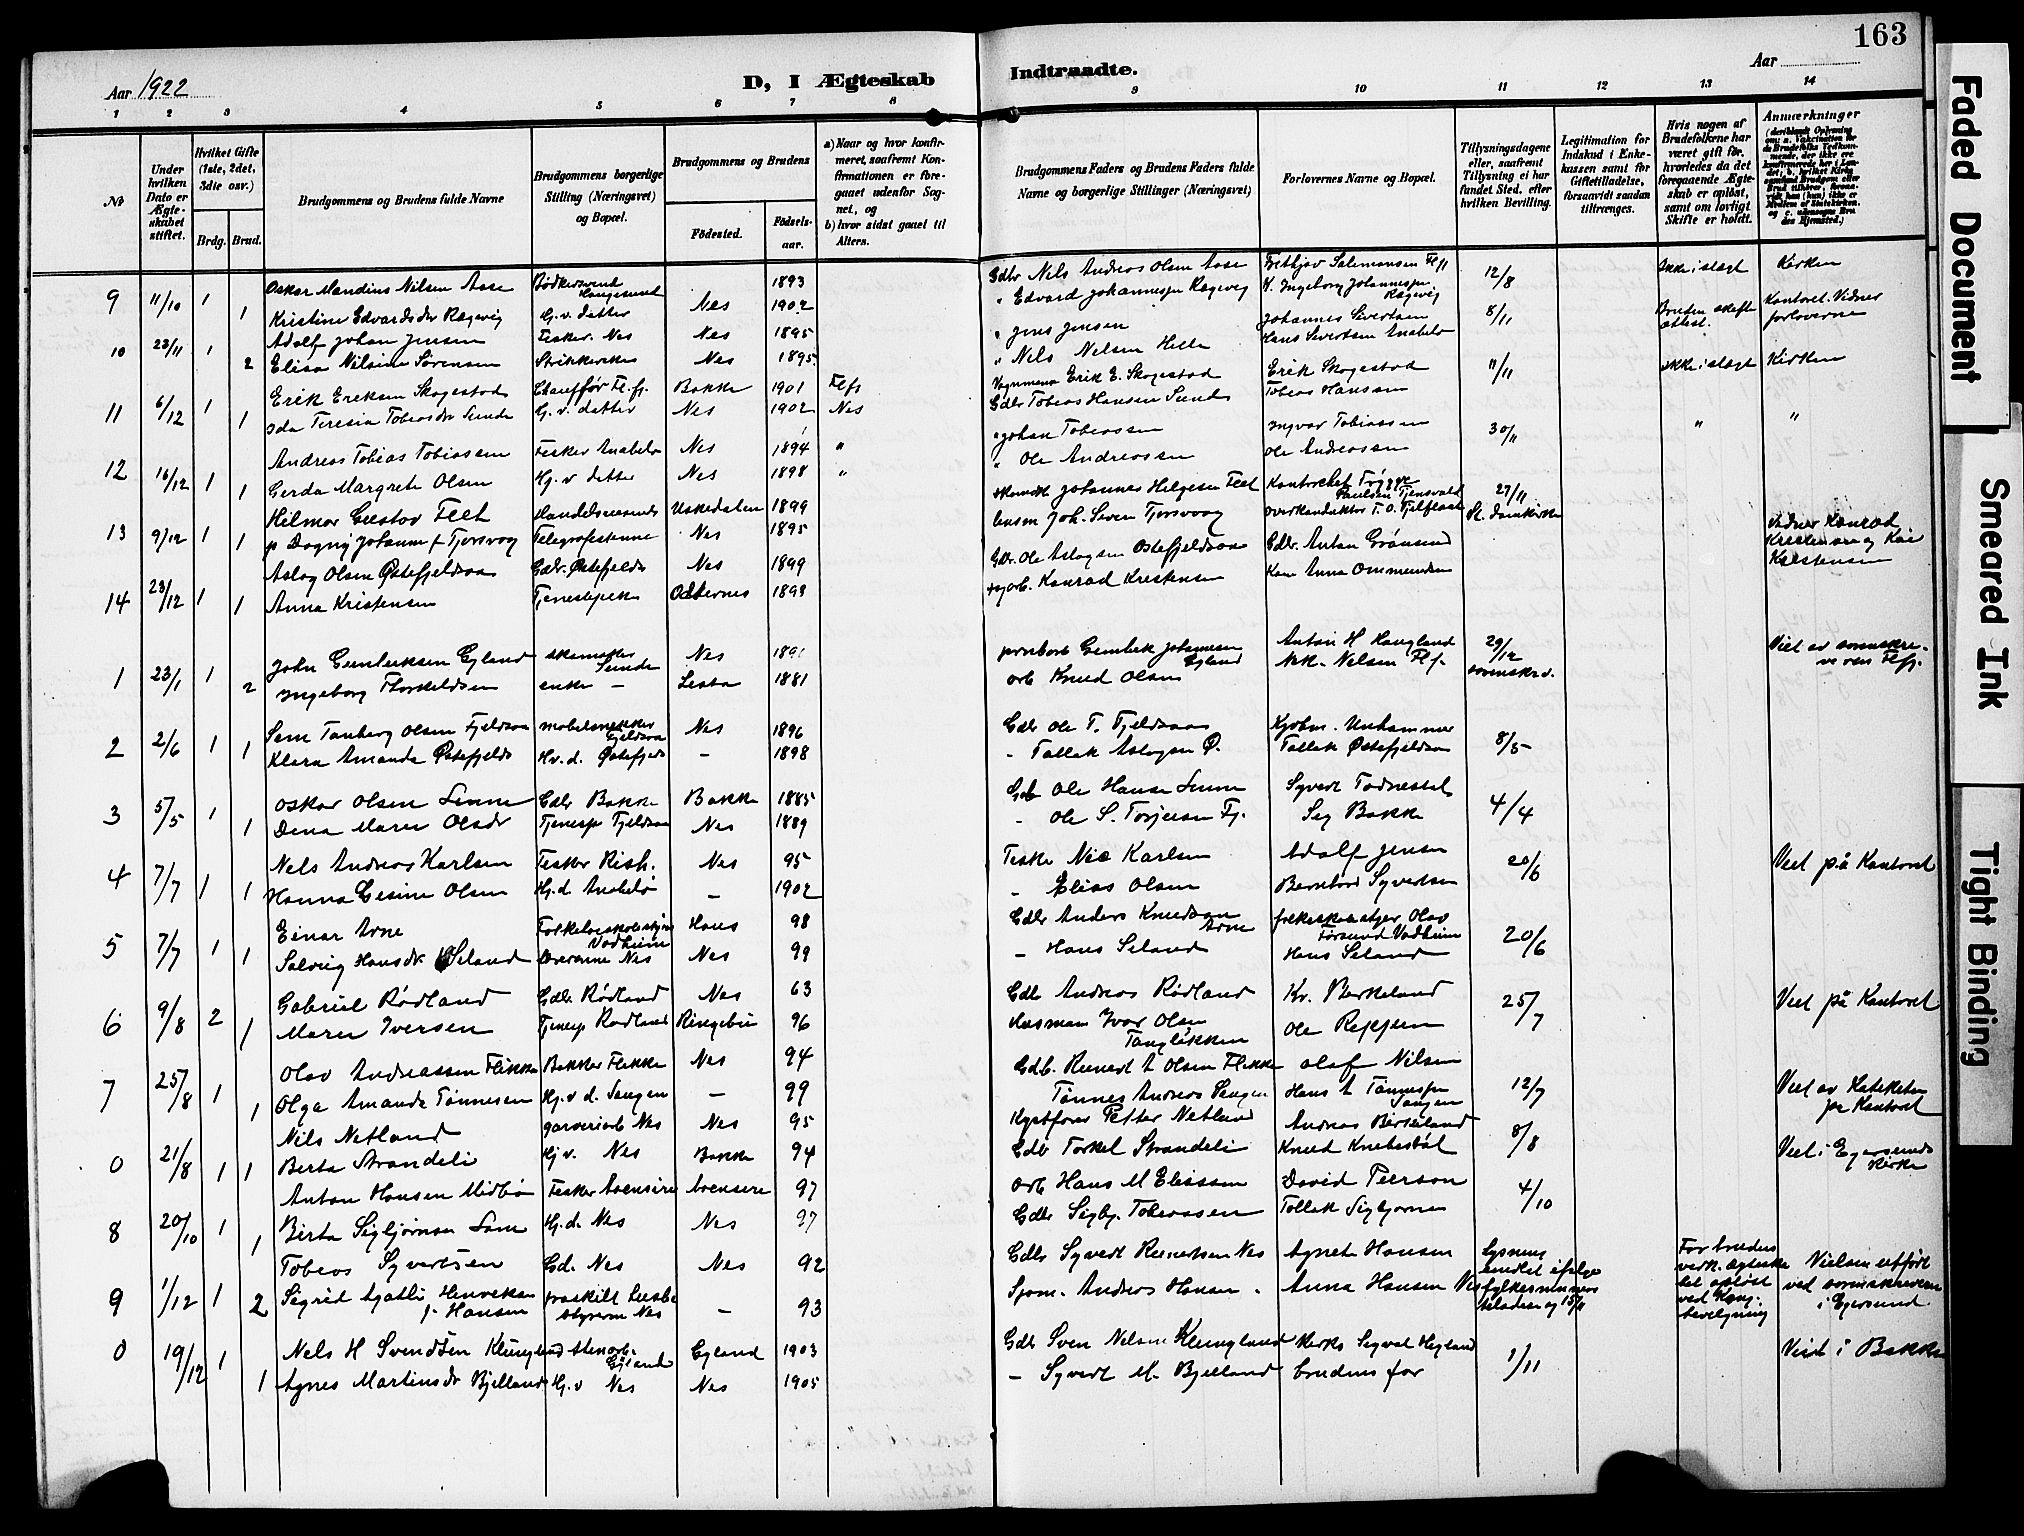 163
Aar 1922
D, I Ægteskab
Indtraadte.
Aar
1 2 3 4 5 6 7 8 9 10 11 12 13 14
No
Under hvilken Dato er Ægteskabet stiftet.
Hvilket Gifte (1ste, 2det, 3die osv.)
Brdg. Brud.
Brudgommens og Brudens fulde Navne
Brudgommens borgerlige Stilling (Næringsvei) og Bopæl.
Brudgommens og Brudens
Födested.
Födselsaar.
a) Naar og hvor konfirmeret, saafremt Konfirmationen er foregaaet udenfor Sognet, og
b) hvor sidst gaaet til Alters.
Brudgommens Faders og Brudens Faders fulde Navne og borgerlige Stillinger (Næringsvei)
Forlovernes Navne og Bopæl.
Tillysningsdagene eller, saafremt Tillysning ei har fundet Sted, efter hvilken Bevilling.
Legitimation for Indskud i Enkekassen samt for Giftetilladelse, forsaavidt saadan tiltrænges.
Hvis nogen af Brudefolkene har været gift för, hvorledes da det foregaaende Ægteskab er oplöst, samt om lovligt Skifte er holdt.
Anmærkninger
9 11/10 1 Oskar Mandius Nilsen Aase Bødkersvend Haugesund 1893 Gdbr Nils Andreas Olsen Aase Frithjov Salomonsen Flf 12/8 Ikke i slegt Kirken
1 Kristine Edvardsdr Rægevig Hj.v. datter Nes 1902 " Edvard Johannesen Rægevig H. Ingeborg Johannesen Rægevig
10 23/11 1 Adolf Johan Jensen Fisker. Nes Nes 1895 " Jens Jensen Johannes Sivertsen 8/11 Kontoret. Vidner forloverne
2 Elisa Nilsine Sørensen Nes 1895 " Nils Nilsen Helle Hans Sivertsen Anabelø
11 6/12 1 Erik Eriksen Skogestad Chauffør Fl.fj. Bakke 1901 Flfj Vognmand Erik E. Skogestad Erik Skogestad 11/11 ikke i slegt Kirken
1 Ida Teresia Tobiasdr Sunde Hj.v. datter Nes 1902 Nes Gdbr Tobias Hansen Sunde Tobias Hansen
12 16/12 1 Andreas Tobias Tobiassen Fisker Anabelø Nes 1894 " " Johan Tobiassen Ingvar Tobiassen 30/11 " "
1 Gerda Margrete Olsen Hj.v datter Nes 1898 " " Ole Andreassen Ole Andreassen
13 9/12 1 Hilmar Gustav Fleet Handelsreisende Uskedalen 1899 Johannes Helgesen Fleet Kontorchef Trygge Paulsen Tjensvold 27/11
1 p Dagny Johanne f Tjorsvaag Telegrafistinne Nes 1895 Joh. Severin Tjorsvaag overkonduktør T. O. Fjelflaat St. Domkirke
14 23/12 1 Aslag Olsen Østefjeldsaa Gdbr. Østefjelds Nes 1899 Gdbr. Ole Aslagsen Østefjeldsaa Gdbr. Anton Grønsund Vidner Konrad Kristensen og Kaia Kristensen
1 Anna Kristensen Tjenestepike Oddernes 1893 Konrad Kristensen Kone Anna Ommundsen
1 23/1 1 John Gunleiksen Eyland skomaker Sunde Nes 1891 Gunleik Johannesen Eyland Anton H Haugland 29/12 sorenskr. Viet av sorenskriveren Flfj.
2 Ingeborg Thorkildsen enke – Lista 1881 arb Knud Olsen Nik. Nilsen Flfj.
2 2/6 1 Sem Tanberg Olsen Fjeldsaa møbelsnekker Fjeldsaa Nes 1896 Gdbr Ole T. Fjeldsaa Kjøbm. Unhammer 8/5
1 Klara Amanda Østefjelds Hv.d. Østefjelds – 1898 – Tallak Aslagsen Ø. Tallak Østefjeldsaa
3 5/5 1 Oskar Olsen Sinnes Gdbr Bakke Bakke 1885 Gdb Ole Hansen Sinnes Syvert Todnestøl 4/4
1 Dina Marie Olsdr Tjenesp Fjeldsaa Nes 1889 – Ole S. Torjusen Fj. Sig Bakke
4 7/7 1 Nils Andreas Karlsen Fisker Rish. Nes 95 Fisker Nic Karlsen Adolf Jensen 20/6 Viet på Kontoret
1 Hanna Gesine Olsen Hj.d. Anabelø – 1902 – Elias Olsen Bernhard Syvertsen
5 7/7 1 Einar Arne Folkehøiskolebestyrer Vadheim Haus 98 Gdbr Anders Knudsen Arne folkeskolestyrer Olav Førsund Vadheim 20/6
1 Solveig Hansdr Seland Lærerinne Nes Nes 99 – Hans Seland Hans Seland
6 9/8 2 Gabriel Rødland Gdbr Rødland Nes 63 Gdbr Andreas Rødland Kr. Birkeland 25/7 Viet på Kontoret
1 Marie Iversen Tjenesp Rødland Ringebu 96 Husman Ivar Olsen Tangløkken Ole Reppen
7 25/8 1 Olav Andreassen Flikke Bakker Flikke Nes 94 Gdb. Reinert A Olsen Flikke Olaf Nilsen 12/7 Viet av Kateketen på Kontoret
1 Olga Amanda Tønnesen Hj.v d. Langen – 99 Tønnes Andreas Langen Hans A Tønnesen Langen
0 21/8 1 Nils Netland garveriarb Nes Nes 95 Petter Netland Andreas Birkeland 8/8 Viet i Egersunds Kirke
1 Berta Strandeli Hj.v. Nes Bakke 94 Gdb Torkel Strandeli Knud Knibestøl
8 20/10 1 Anton Hansen Midbø Fisker Aaensire Aaensire 97 Arb Hans M Eliassen David Peerson 4/10
1 Berta Sigbjørnsen Lone Hj.d. Nes Nes 97 Gdbr Sigbj. Tobiassen Tollak Sigbjørnsen
9 1/12 1 Tobias Syvertsen Gd. Nes Nes 92 Gdbr Syvert Reinertsen Nes Agnete Hansen
2 Sigrid Agathe Henriksen f. Hansen fraskilt husbestyrerinne Nes – 93 Sjøm. Andreas Hansen Anna Hansen Nes
Lysning
For brudens vedk. ægteskabet opløst ved Kong. bevilgning
Vielsen utført ved sorenskriveren i Egersund.
0 19/12 1 Nels H Svendsen Klungland Stenarb. Eyland Eyland 1903 Gdb Sven Nilsen Klungland Kirkes. Sigval Hegland 1/11 Viet i Bakke
1 Agnes Martinsdr Bjelland Hj.v Nes Nes 1905 – Syvert M. Bjelland brudens far
Faded Document
Smeared Ink
Tight Binding